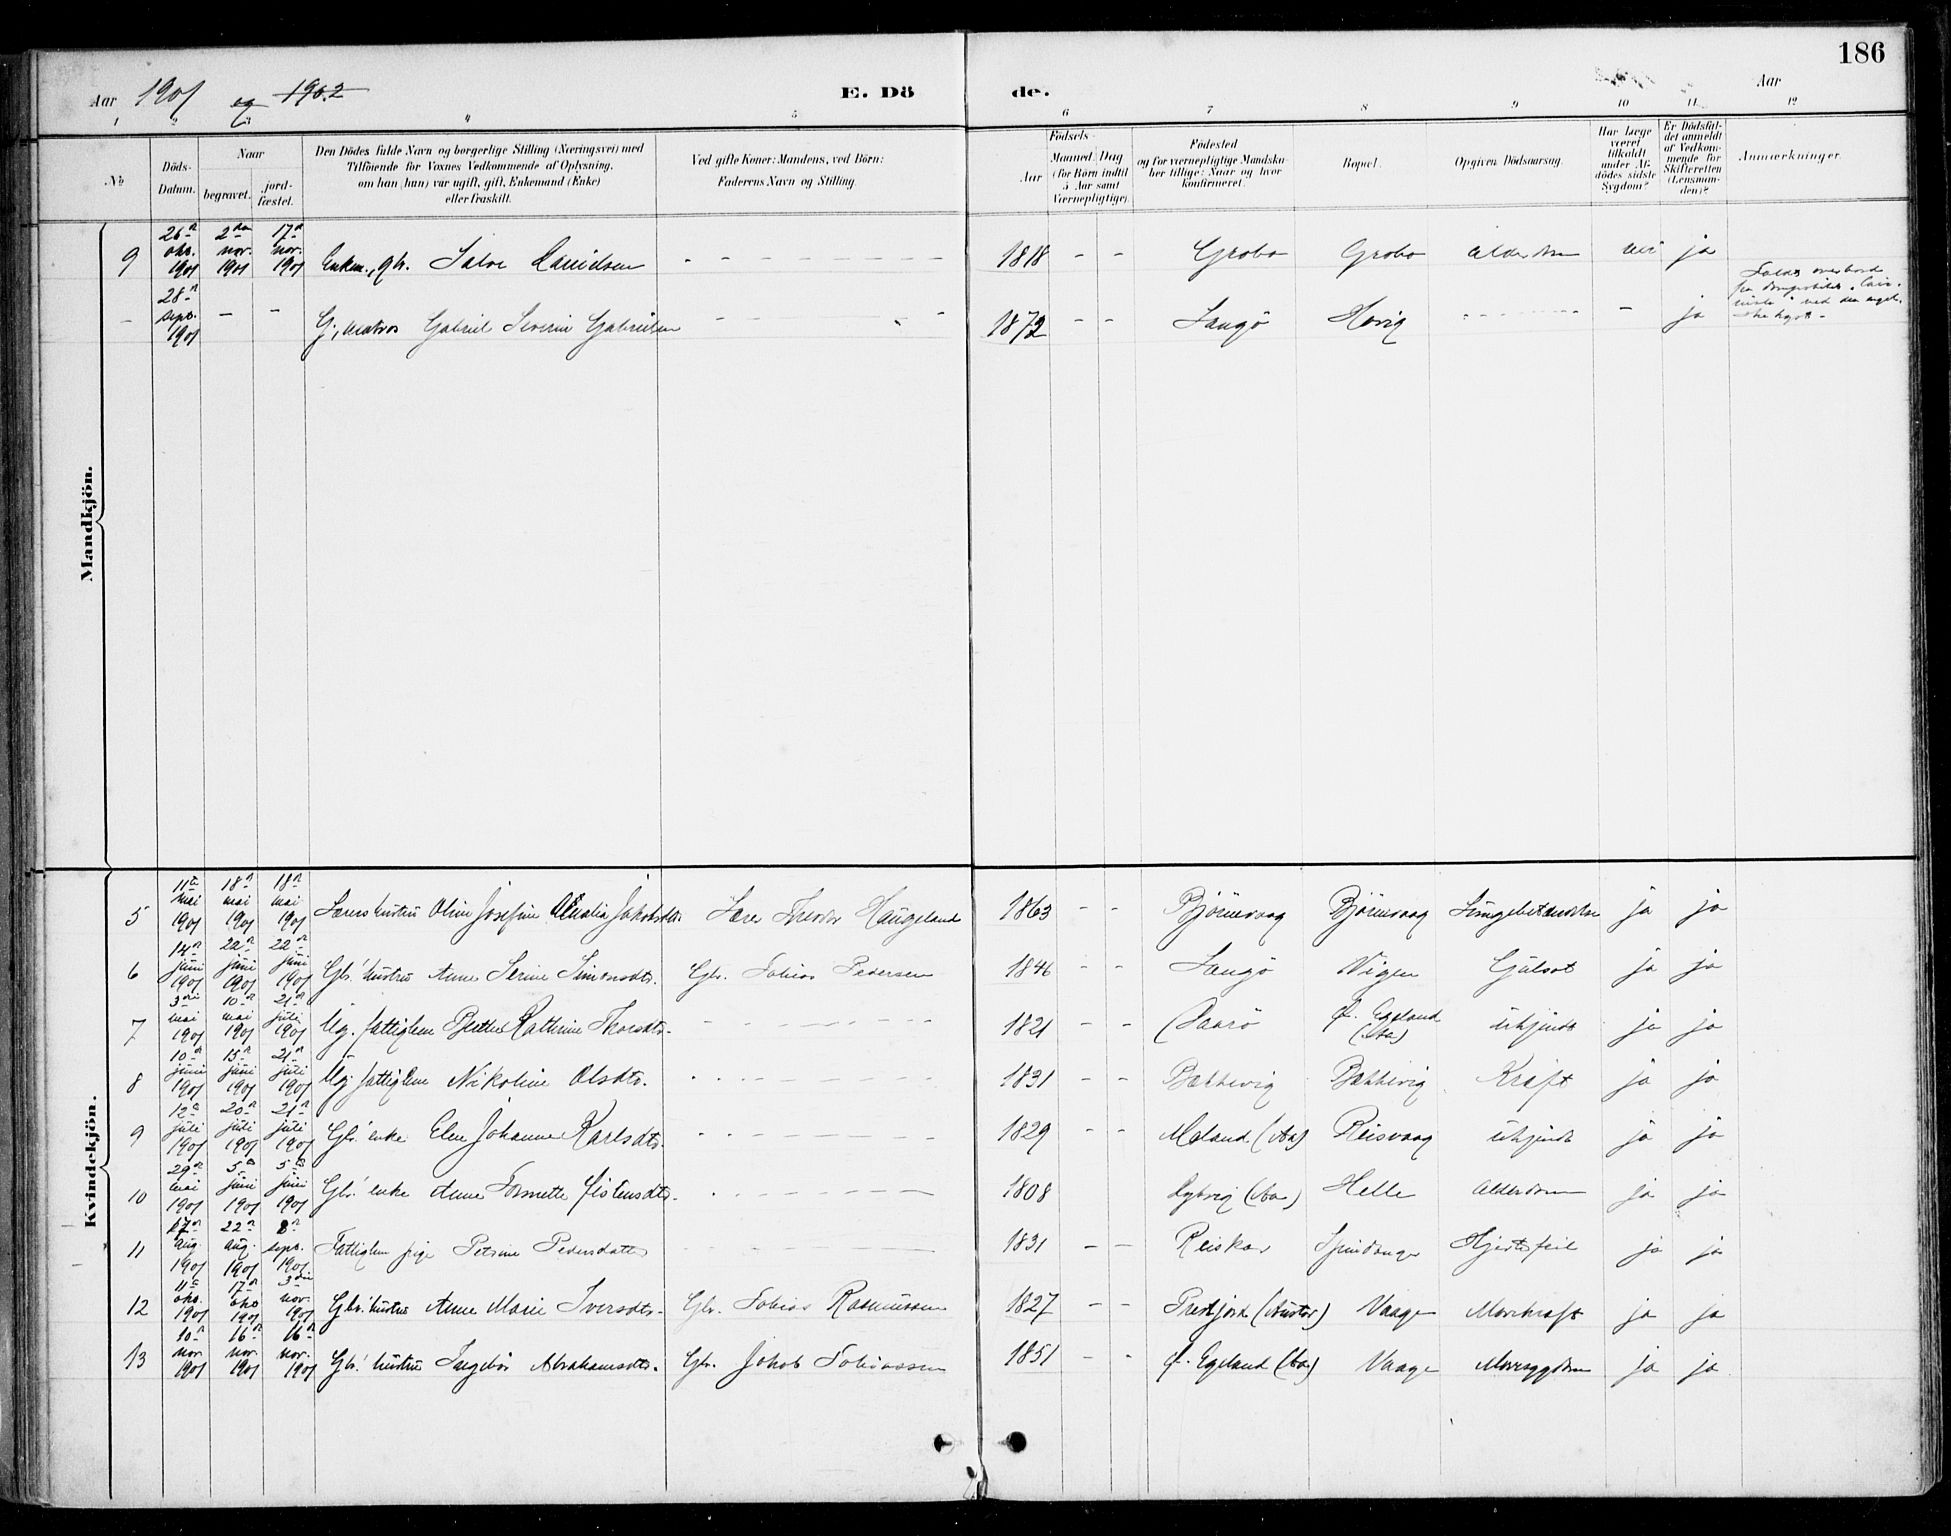 186
Aar 1901 og 1902
E. Döde.
Aar
1 2 3 4 5 6 7 8 9 10 11 12
No
Döds-Datum.
Naar
begravet.
jord-fæstet.
Den Dödes fulde Navn og borgerlige Stilling (Næringsvei) med
Tilföiende for Voxnes Vedkommende af Oplysning,
om han (hun) var ugift, gift, Enkemand (Enke)
eller fraskilt.
Ved gifte Koner: Mandens, ved Börn:
Faderens Navn og Stilling.
Födsels-
Aar
Maaned. Dag
(for Börn indtil
5 Aar samt
Værnepligtige)
Födested
og for værnepligtige Mandskaber tillige: Naar og hvor
konfirmeret.
Bopæl.
Opgiven Dödsaarsag.
Har Læge
været
tilkaldt
under Afdödes sidste
Sygdom?
Er Dödsfaldet anmeldt
af Vedkommende for
Skifteretten
(Lensmanden)?
Anmærkninger.
Mandkjön.
9 26de okt. 1901 2den nov. 1901 17de nov. 1901 Enkem., gbr. Salve Davidsen - - - 1818 - - Grobo Grobo alderdom nei ja
- 28de sept. 1901 - - G., matros Gabriel Severin Gabrielsen - - - 1872 - - Langö Hövig - - - - ja
Faldt overbord
fra
ved den engelske kyst.
Kvindekjön.
5 11te mai 1901 18de mai 1901 18de mai 1901 Lærers hustru Oline Josefine Amalia Jakobsdtr. Lærer Theodor Haugeland 1863 - - Björnevaag Björnevaag Lungebetændelse ja ja
6 14de juni 1901 22de juni 1901 22de juni 1901 Gbr.' hustru Anne Serine Simonsdtr. Gbr. Tobias Pedersen 1846 - - Langö Vigen Gulsot ja ja
7 3die mai 1901 10de mai 1901 21de juli 1901 Ug. fattiglem Berthe Kathrine Thorsdtr. - - - 1821 - - Paarö Ø. Egeland (Aa) ukjendt ja ja
8 10de juni 1901 15de juni 1901 21de juli 1901 Ug. fattiglem Nikoline Olsdtr. - - - 1831 - - Bækkevig Bækkevig Kræft ja ja
9 12te juli 1901 20de juli 1901 21de juli 1901 Gbr.' enke Elen Johanne Karlsdtr. - - - 1829 - - Meland (Aa) Reisvaag ukjendt ja ja
10 29de mai 1901 5te juni 1901 5te juni 1901 Gbr.' enke Anne Tomette Jistensdtr. - - - 1808 (Aa) Helle Alderdom ja ja
11 17de aug. 1901 22de aug. 1901 8de sept. 1901 Fattiglem pige Petrine Pedersdatter - - - 1831 - - Reiskar Spindsanger Hjertefeil ja ja
12 11te okt. 1901 17de okt 1901 3die nov. 1901 Gbr.' hustru Anne Marie Iversdtr. Gbr. Tobias Rasmussen 1827 - - (Austad) Vaage Mavekræft ja ja
13 10de nov. 1901 16de nov. 1901 16de nov. 1901 Gbr.' hustru Ingebor Abrahamsdtr. Gbr. Jakob Tobiassen 1851 - - Ø. Egeland (Aa) Vaage Mavesygdom ja ja